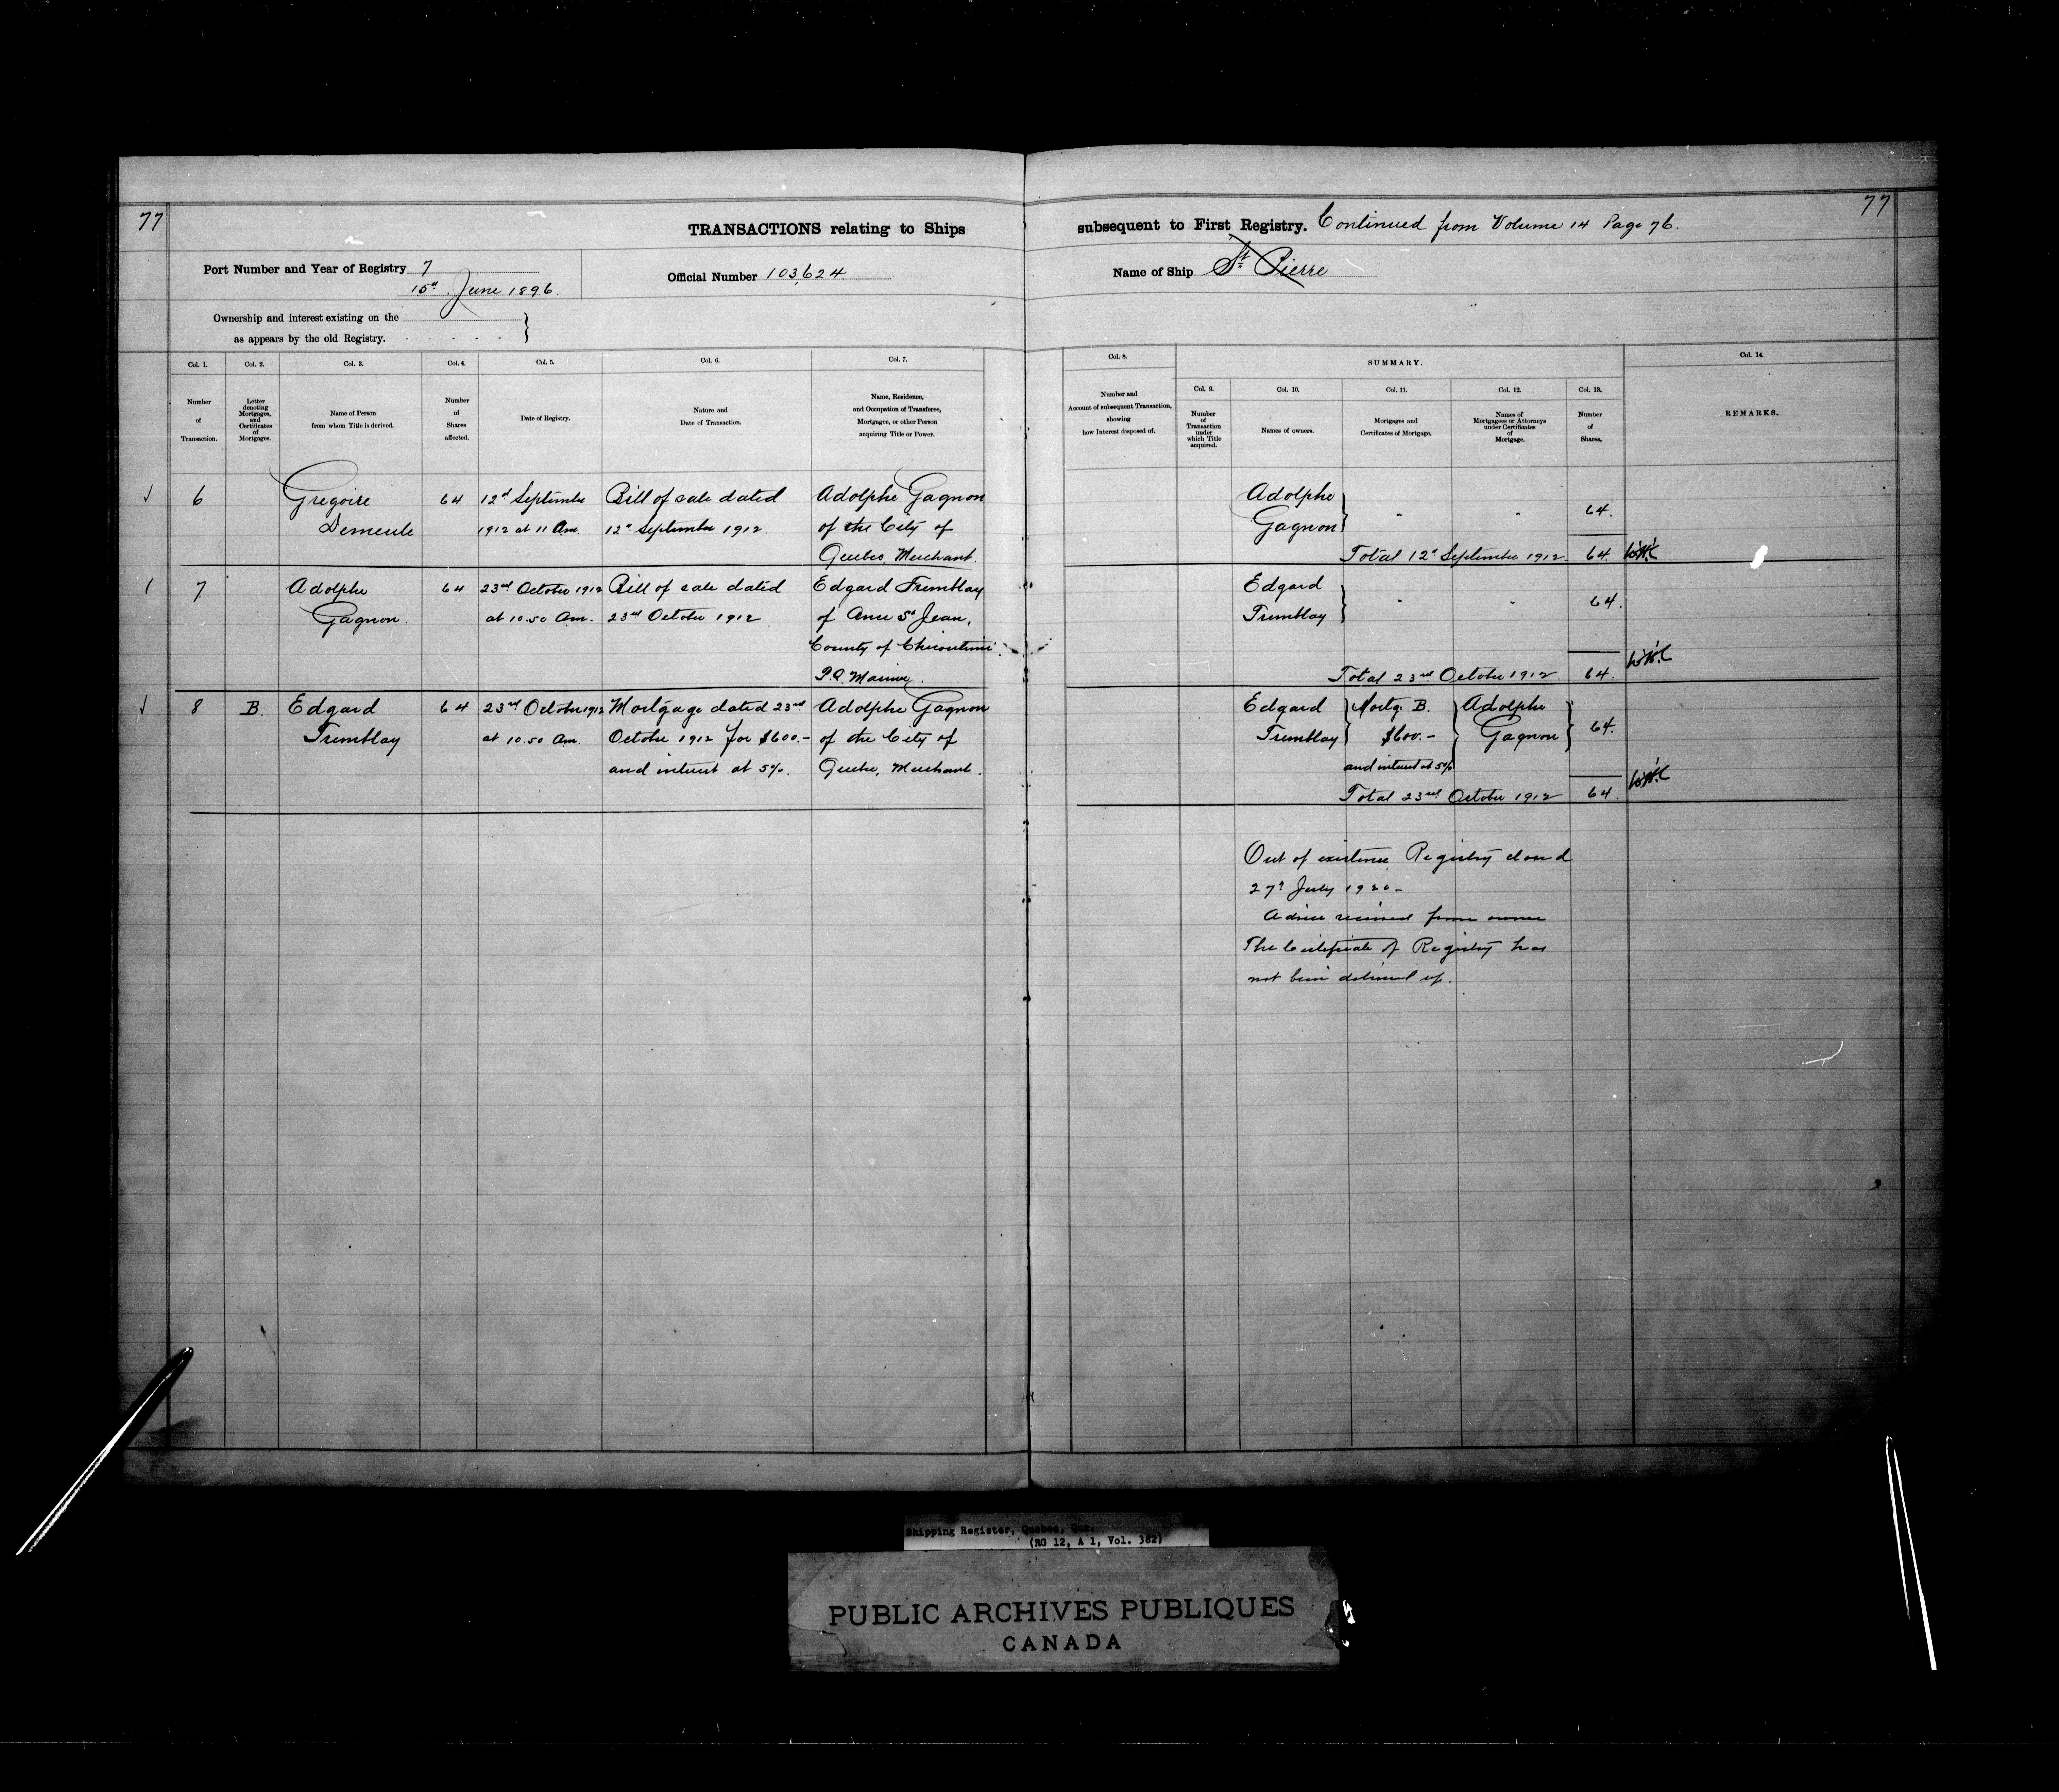 77
77
TRANSACTIONS relating to Ships subsequent to First Registry. Continued from Volume 14 Page 76.
Port Number and Year of Registry 7
15th June 1896.
Official Number 103,624
Name of Ship St. Pierre
Ownership and interest existing on the
as appears by the old Registry.
Col. 1.
Number
of
Transaction.
Col. 2.
Letter
denoting
Mortgages,
and
Certificates
of
Mortgages.
Col. 3.
Name of Person
from whom Title is derived.
Col. 4.
Number
of
Shares
affected.
Col. 5.
Date of Registry.
Col. 6.
Nature and
Date of Transaction.
Col. 7.
Name, Residence,
and Occupation of Transferee,
Mortgagee, or other Person
acquiring Title or Power.
Col. 8.
Number and
Account of subsequent Transaction,
showing
how Interest disposed of.
SUMMARY.
Col. 9.
Number
of
Transaction
under
which Title
acquired.
Col. 10.
Names of owners.
Col. 11.
Mortgages and
Certificates of Mortgage.
Col. 12.
Names of
Mortgagees or Attorneys
under Certificates
of
Mortgage.
Col. 13.
Number
of
Shares.
Col. 14.
REMARKS.
6
Gregoire
Demeule
64
12th September
1912 at 11 Am.
Bill of sale dated
12th September 1912.
Adolphe Gagnon
of the City of
Quebec, Merchant.
Adolphe
Gagnon
64.
Total 12th September 1912 64
7
Adolphe
Gagnon.
64
23rd October 1912
at 10.50 Am.
Bill of sale dated
23rd October 1912
Edgard Tremblay
of Anse St Jean,
County of Chicoutimi
P.Q. Mariner.
Edgard
Tremblay
64.
Total 23rd October 1912 64.
8
B.
Edgard
Tremblay
64
23rd October 1912
at 10.50 Am.
Mortgage dated 23rd
October 1912 for $600.-
and interest at 5%.
Adolphe Gagnon
of the City of
Quebec, Merchant.
Edgard
Tremblay
Mortg. B.
$600.-
and interest at 5%
Adolphe
Gagnon
64.
Total 23rd October 1912 64.
Out of existence Registry closed
27th July 1920-
Advice received from owner
The Certificate of Registry has
not been delivered up.
Shipping Register, Quebec, Que.
(RG 12, A 1, Vol. 382)
PUBLIC ARCHIVES PUBLIQUES
CANADA